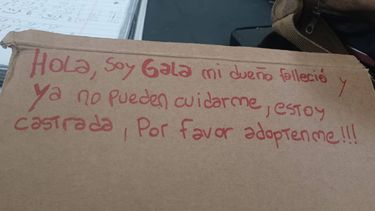 HOLA, SOY GALA mi dueño falleció y
ya no pueden cuidarme, estoy
castrada, Por favor adoptenme!!!